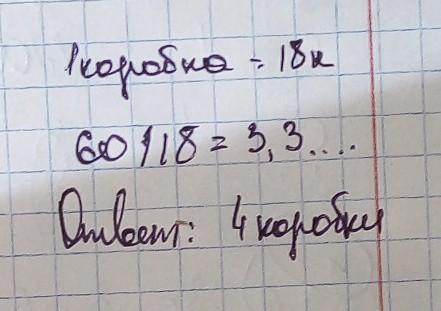 1 коробка = 18 к
60 / 18 = 3,3....
Ответ: 4 коробки